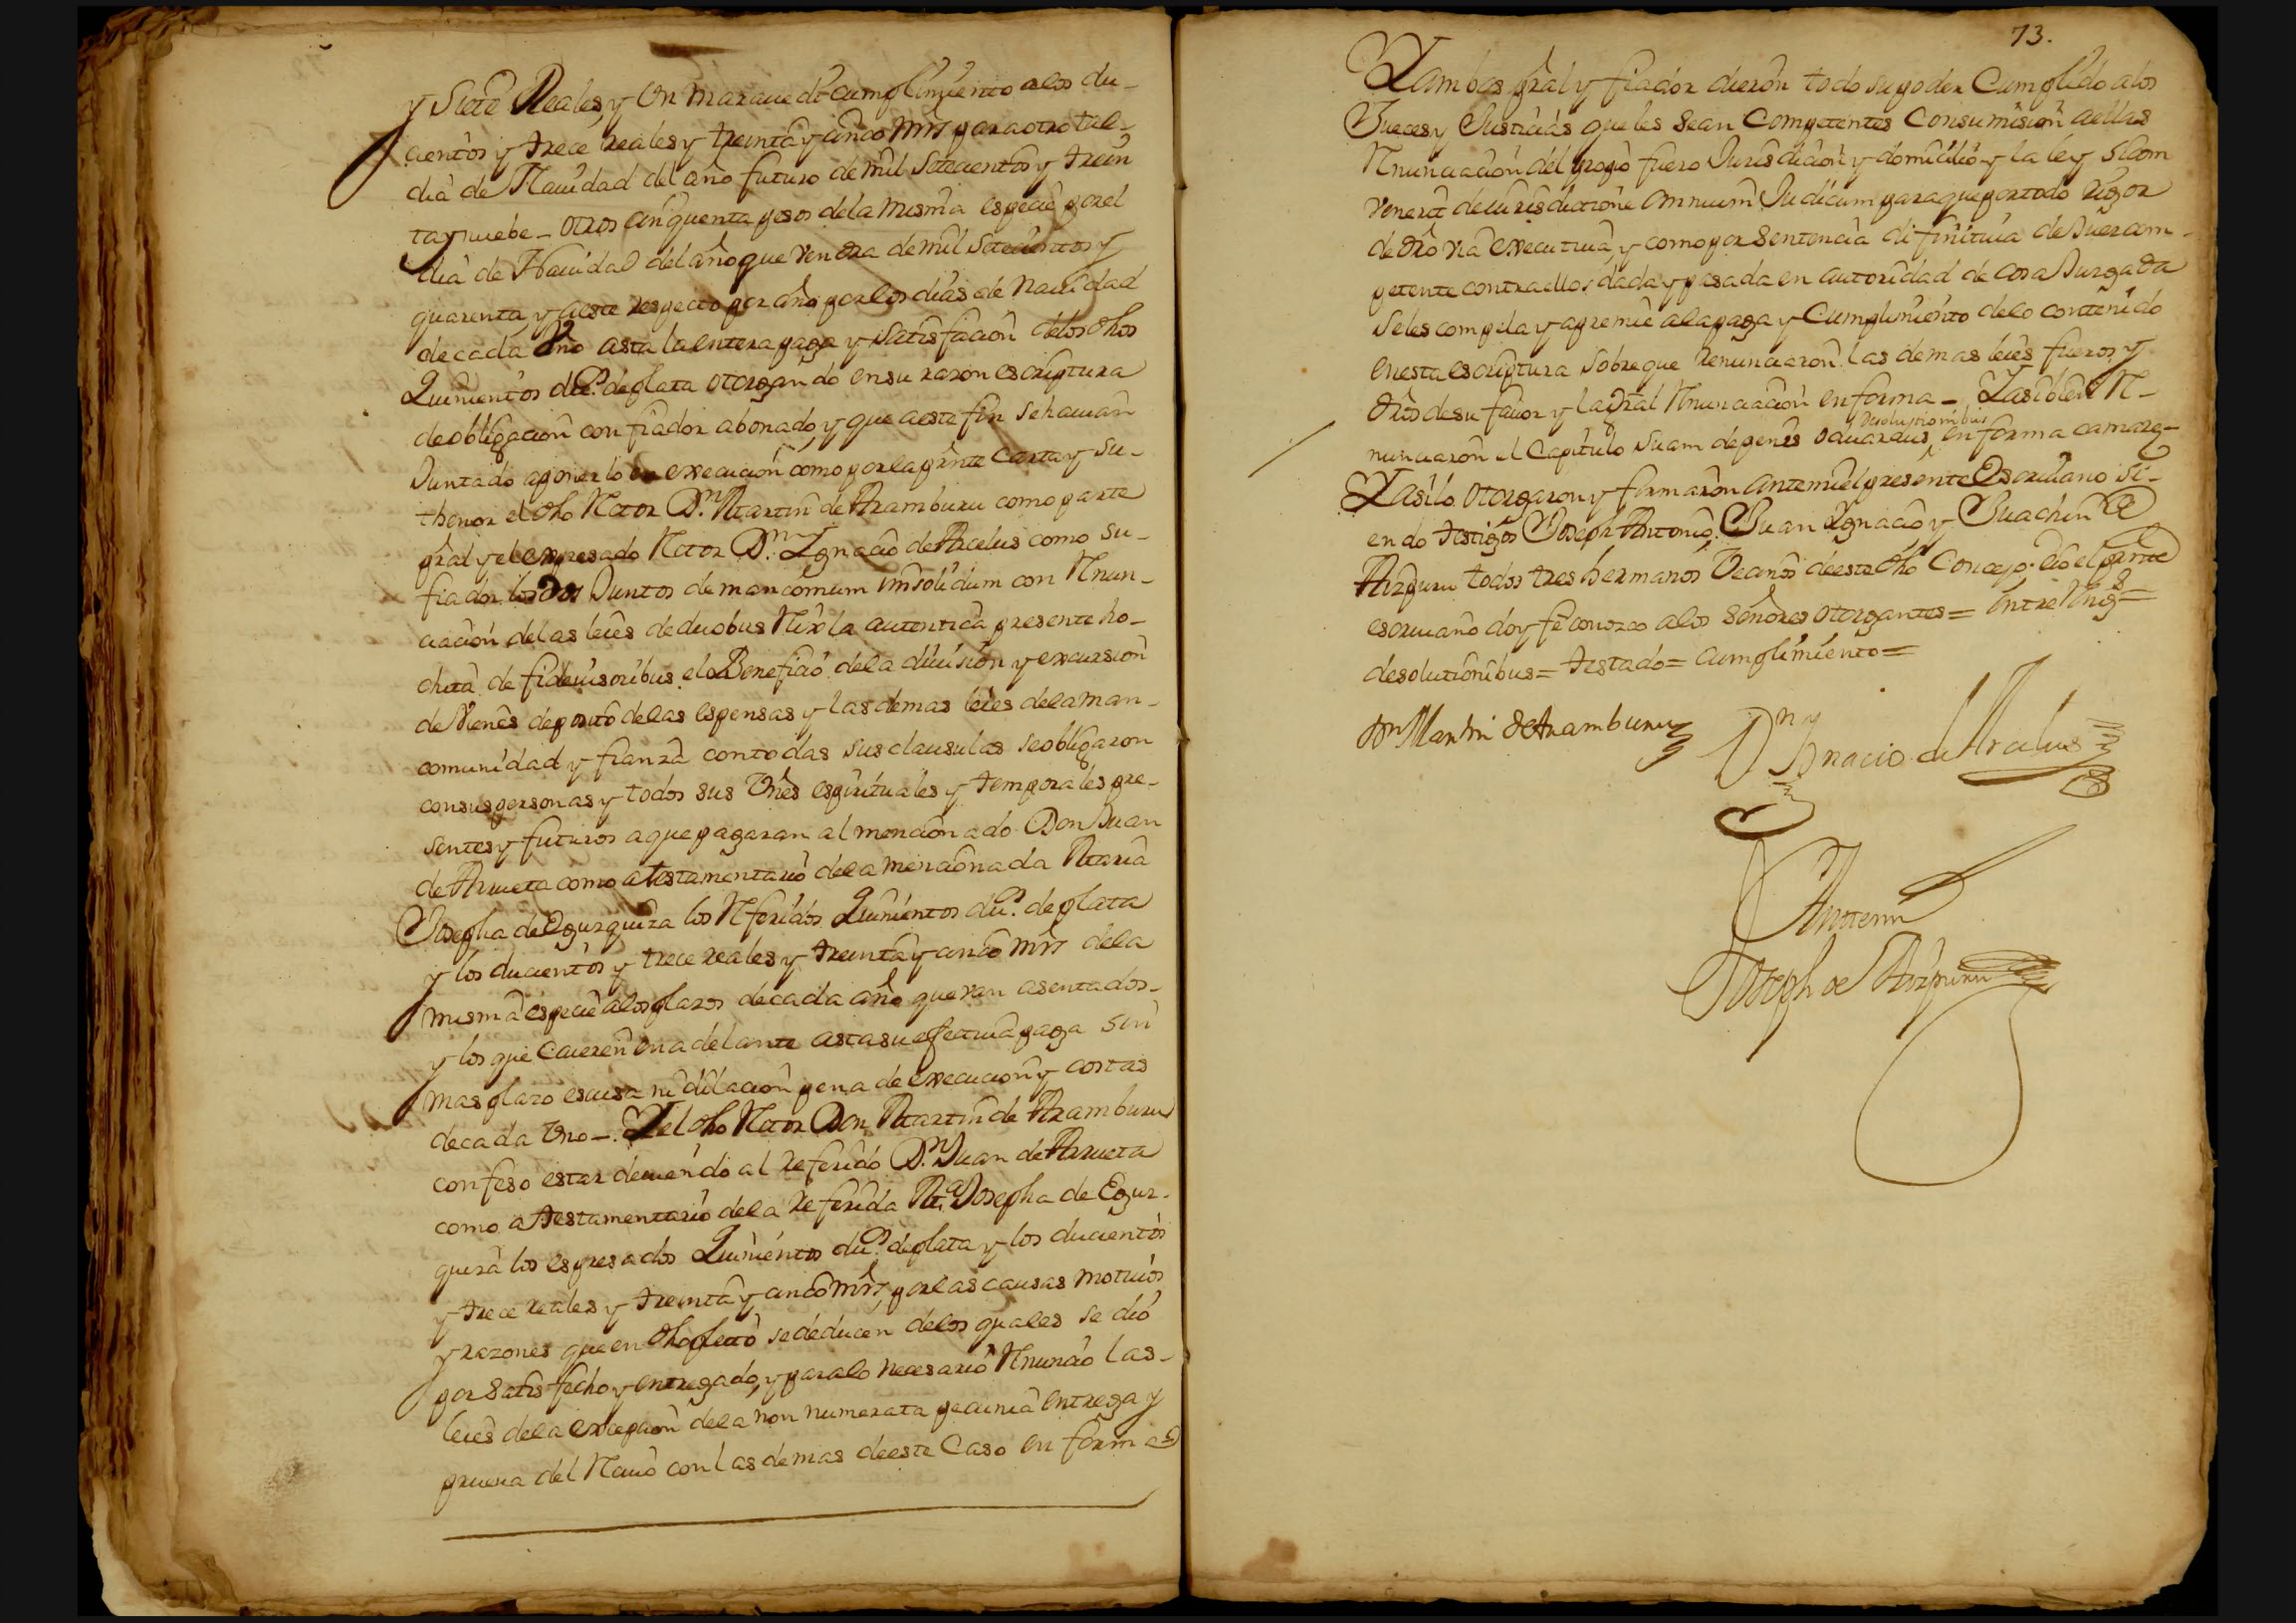 y siete Reales, y Un marauedi cumplimiento alos du-
cientos y trece reales y treinta y cinco mrs para otro tal-
dia de Nauidad del año futuro de mil setecientos y trein
ta y nuebe - otros cinquenta pesos dela misma especie por el
dia de Nauidad del año que vendra de mil setecientos y
quarenta, y aeste respecto por año por los dias de nauidad
de cada Vno asta la entera paga y satisfacion delos dhos
Quinientos dus. de plata otorgando en su razon escriptura
de obligacion con fiador abonado, y que aeste fin se hauian
Juntado aponerlo en execucion como por la pnte Carta y su-
thenor el dho Retor Dn. Martin de Aramburu como parte
pral y el expresado Retor Dn. Ygnacio de Arcelus como su-
fiador los Dos Juntos de mancomum imsolidum con Renun-
ciacion de las leies de duobus Rex la autentica presente ho-
chita de fideiusoribus el Beneficio dela diuision y excursion
de vienes deposito delas espensas y las demas leies dela man-
comunidad y fianza con todas sus clausulas se obligaron
con sus personas y todos sus Vnes espirituales y temporales pre-
sentes y futuros a que pagaran al mencionado Don Juan
de Arrueta como atestamentario dela mencionada Maria
Josepha de Egurquiza los Referidos Quinientos dus. de plata
y los ducientos y trece reales y treinta y cinco mrs dela
misma especie alos plazos de cada año que van asentados-
y los que Caieren en adelante asta su efectiua paga sin
mas plazo escusa ni dilacion pena de execucion y costas
de cada Vno -. Y el dho Retor Don Martin de Aramburu
confeso estar deuiendo al referido Dn. Juan de Arrueta
como atestamentario dela referida Ma. Josepha de Egur-
quiza los espresados Quinientos dus. de plata y los ducientos
y trece reales y treinta y cinco mrs, por las causas motiuos
y razones que en dho pleito se deducen delos quales se dio
por satisfecho y entregado, y para lo necesario Renuncio las-
leies dela excepcion dela non numerata pecunia entrega y
prueua del Reciuo con las demas deeste Caso en forma
73.
Y ambos pral y fiador dieron todo su poder Cumplido alos
Jueces y Justicias que les sean Competentes Con sumision aellas
Renunciacion del propio fuero Jurisdicion y domicilio y la ley sicom
venerit de iurisdictione omnium Judicum para que por todo rigor
de dro via executiua, y como por sentencia difinitiua de Juez com-
petente contra ellos dada y pasada en autoridad de cosa Juzgada
se les compela y apremie ala paga y Cumplimiento delo contenido
en esta escriptura sobre que renunciaron las demas leies fueros y
dros de su fauor y la gral Renunciacion en forma - Y asi bien Re-
nunciaron el Capitulo suam de penis oduardus, desolutionibus en forma camare-
Y asi lo otorgaron y firmaron ante mi el presente Escriuano si-
endo testigos Joseph Antonio, Juan Ygnacio y Juachin de
Aizpuru todos tres hermanos Vecinos deeste dho Concejo. e io el pnte
escriuano doy fe conozco alos señores otorgantes= entre Rengs=
desolutionibus= testado= cumplimiento=
Dn Martin de Aramburu
Dn Ygnacio de Arcelus
Ante mi
Joseph de Aizpuru